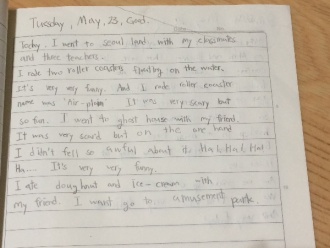 Tuesday, May, 23, Good.
Today, I went to seoul land with my classmates
and three teachers.
I rode two roller coasters floating on the water.
It's very very funny. And I rode roller coaster
name was "Air-plain" It was very scary but
so fun. I went to ghost house with my friend.
It was very scard but on the one hand
I didn't fell so awful about it. Ha, Ha, Ha!
Ha.... It's very very funny.
I ate doughnut and Ice-cream with
my friend. I want go to amusement park